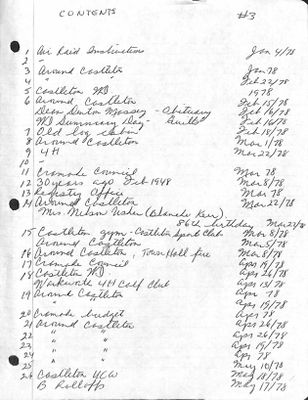 CONTENTS #3
1 Air Raid Instructions Jan 4/78
2 "
3 Around Castleton Jan 78
4 " Feb 22/78
5 Castleton WI 1978
6 Around Castleton Feb 15/78
Dean Denton Massey - Obituary Feb 16/78
WI Summary Day - Feb 16/78
7 Old log cabin Feb 18/78
8 Around Castleton Mar 1/78
9 4H Mar 22/78
10 "
11 Cramahe Council Mar 78
12 30 years ago Feb 1948 Mar 8/78
13 Registry Office Mar 78
14 Around Castleton Mar 22/78
Mrs. Nelson Usher (Blanche Kerr)
86th birthday Mar 22/78
15 Castleton gym - Castleton Sports Club Mar 8/78
Around Castleton Mar 5/78
16 Around Castleton, Town Hall fire Mar 8/78
17 Cramahe Council Apr 19/78
18 Castleton WI Apr 26/78
Warkworth 4H Calf Club Apr 13/78
19 Around Castleton Apr 78
Apr 19/78
20 Cramahe budget Apr 78
21 Around Castleton Apr 26/78
22 " " Apr 26/78
23 " " Apr 19/78
24 " " Apr 78
25 " May 10/78
26 Castleton UCW May 18/78
B Rolloffs May 17/78